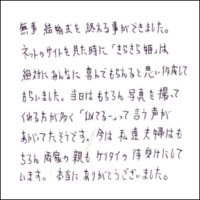 無事 結婚式を終える事ができました。
ネットのサイトを見た時に「きらきら姫」は
絶対にみんなに喜んでもらえると思い作成して
もらいました。当日はもちろん写真を撮って
くれる方が多く「似てるー」って言う声が
あがってたそうです。今は私達夫婦はも
ちろん両家の親もケイタイの待受けにして
います。本当にありがとうございました。